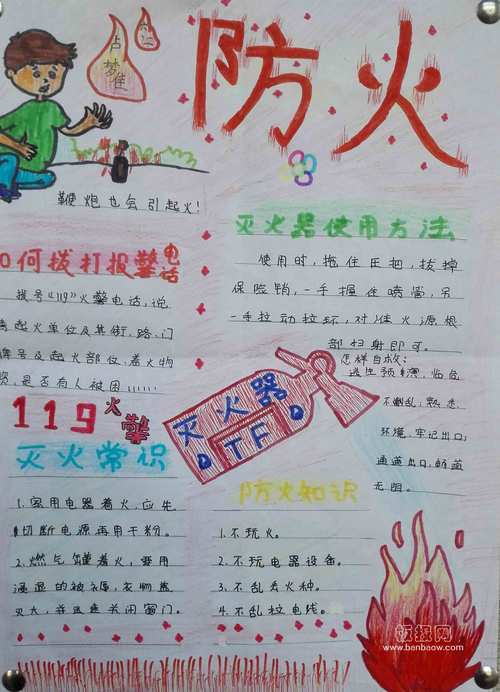 防火
占梦佳
鞭炮也会引起火!
何拨打报警电话
拨号“119”火警电话,说
起火单位及其街、路、门
牌号及起火部位,着火物
是否有人被困……
119火警
灭火常识
1.家用电器着火,应先
切断电源再用干粉。
2.燃气罐着火,要用
浸湿的被褥,衣物盖
灭火,并迅速关闭阀门。
灭火器使用方法
使用时,拖住压把,拔掉
保险销,一手握住喷管,另
一手拉动拉环,对准火源根
部扫射即可。
怎样自救:
逃生预演,临危
不乱;熟悉
环境,牢记出口;
通道出口,畅通
无阻。
灭火器
DTFD
防火知识
1.不玩火。
2.不玩电器设备。
3.不乱丢火种。
4.不乱拉电线。
饭报网
www.banbaow.com